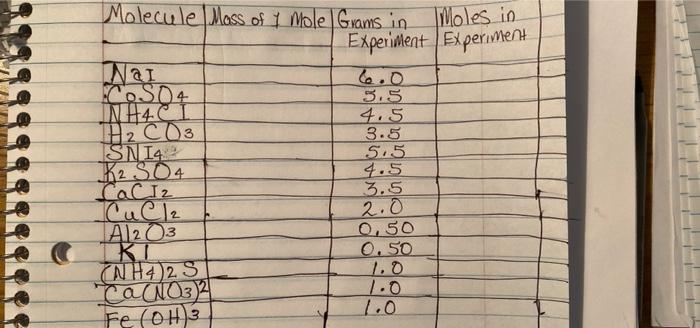 Molecule Mass of 1 Mole Grams in Experiment Moles in Experiment
NaI 6.0
CoSO4 5.5
NH4CI 4.5
H2CO3 3.5
SNI4 5.5
K2SO4 4.5
CaCI2 3.5
CuCl2 2.0
Al2O3 0.50
KI 0.50
(NH4)2S 1.0
Ca(NO3)2 1.0
Fe(OH)3 1.0